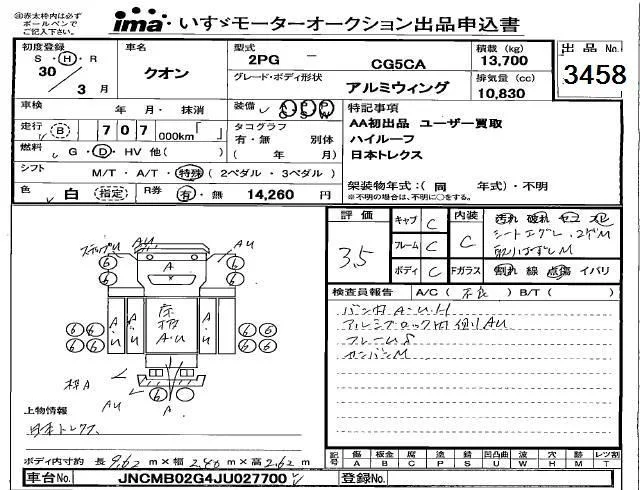 ※赤太枠内は必ず
ボールペンで
ご記入下さい。
ima いすゞモーターオークション出品申込書
初度登録 S・H・R 30 / 3 月
車名 クオン
型式 2PG － CG5CA
積載 (kg) 13,700
出品No. 3458
グレード・ボディ形状 アルミウィング
排気量 (cc) 10,830
車検 年 月・抹消
装備 A P P C S W
特記事項
走行 B 707 000km「 」
タコグラフ 有・無 別体 ( 年 月)
AA初出品 ユーザー買取
ハイルーフ
日本トレクス
燃料 G・D・HV 他( )
シフト M/T・A/T・特殊(2ペダル・3ペダル)
色 白 指定 R券 有・無 14,260 円
架装物年式:(同 年式)・不明
※不明の場合は、不明に○をする。
評価 3.5
キャブ C
フレーム C
ボディ C
内装 C
汚れ 破れ コゲ スレ
シート
取りはずしM
Fガラス 割れ 線 点傷 イバリ
検査員報告 A/C(不良) B/T( )
バン内 A・U・H
アルミブロック内側AU
フレームS
カンバンM
ステップU AU AU
A
6 6 6 6
床板 A・U
A・U A・U
6 6 6 6
6 6 6 6
枠A
AU A
6
上物情報
日本トレクス
ボディ内寸約 長 9.62 m×幅 2.40 m×高 2.62 m
記号 傷 A 板金 B 腐 C 塗 P 錆 S 凹凸曲 U 波 W 穴 H 欠 M レツ割 T
車台No. JNCMB02G4JU027700
登録No.